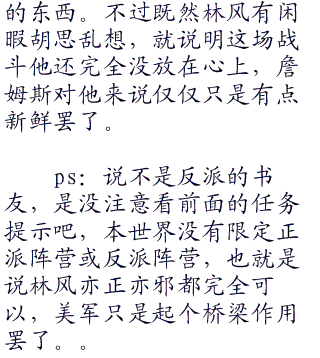 的东西。不过既然林风有闲
暇胡思乱想，就说明这场战
斗他还完全没放在心上，詹
姆斯对他来说仅仅只是有点
新鲜罢了。
ps：说不是反派的书
友，是没注意看前面的任务
提示吧，本世界没有限定正
派阵营或反派阵营，也就是
说林风亦正亦邪都完全可
以，美军只是起个桥梁作用
罢了。。